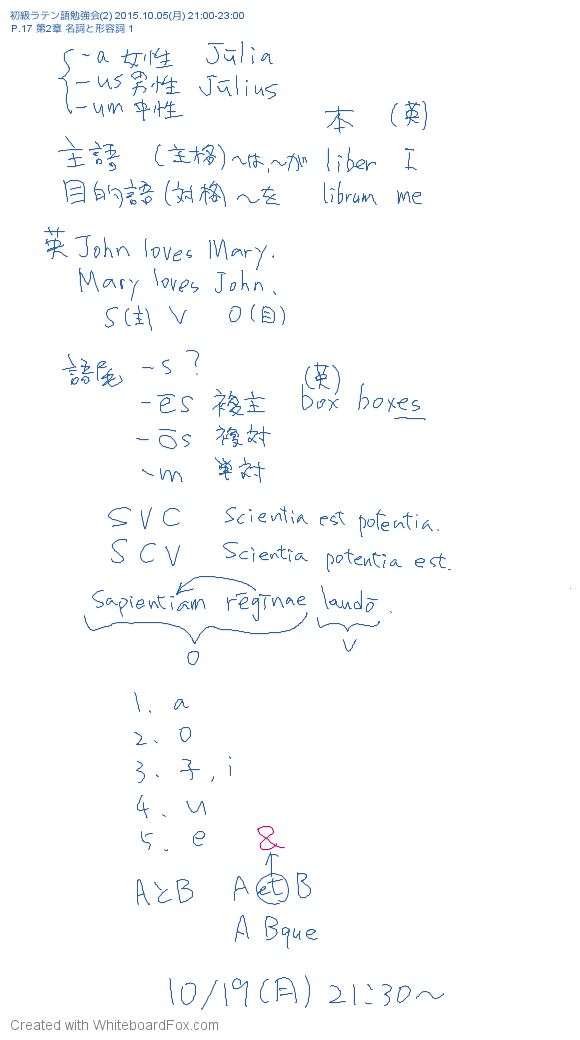 初級ラテン語勉強会(2) 2015.10.05(月) 21:00-23:00
P.17 第2章 名詞と形容詞 1
-a 女性 Jūlia
-us 男性 Jūlius
-um 中性
本 (英)
主語 (主格) ～は,～が liber I
目的語 (対格) ～を librum me
英 John loves Mary.
Mary loves John.
S(主) V O(目)
語尾 -s ?
(英)
-ēs 複主 box boxes
-ōs 複対
-m 単対
S V C Scientia est potentia.
S C V Scientia potentia est.
Sapientiam rēgīnae laudō.
O V
1. a
2. o
3. 子, i
4. u
5. e &
AとB A et B
A Bque
10/19(月) 21:30～
Created with WhiteboardFox.com